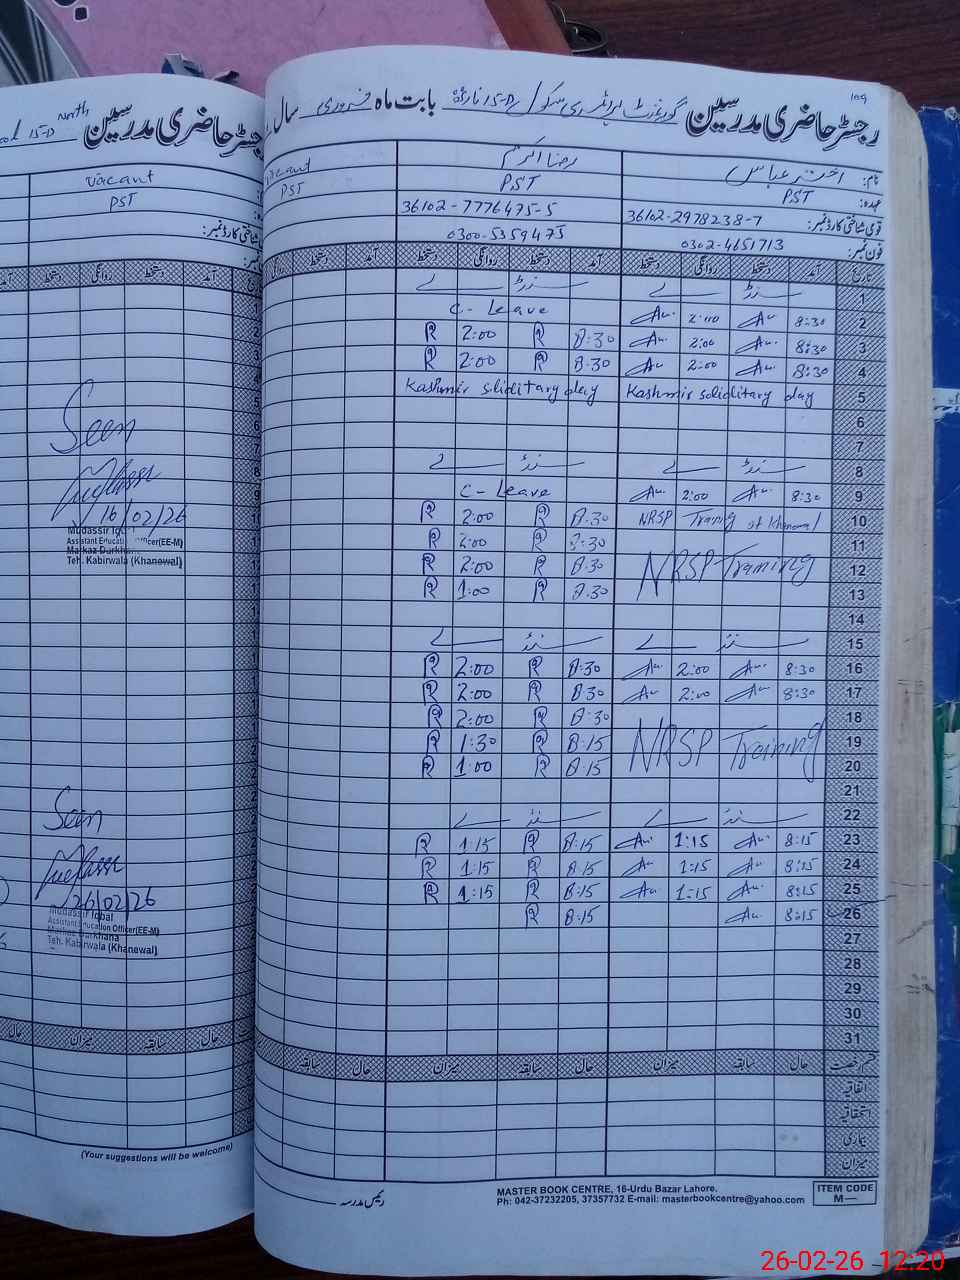 109
رجسٹر حاضری مدرسین گورنمنٹ پرائمری سکول 15-D بابت ماہ فروری سال
نام: اختر عباس رضا اکرم vacant
عہدہ: PST PST PST
قومی شناختی کارڈ نمبر: 36102-2978238-7 36102-7776475-5
فون نمبر: 0302-4651713 0300-5359475
تاریخ آمد دستخط روانگی دستخط آمد دستخط روانگی دستخط آمد دستخط روانگی
1 سنڈے سنڈے
2 8:30 Au 2:00 Au C-Leave
3 8:30 Au 2:00 Au 8:30 R 2:00 R
4 8:30 Au 2:00 Au 8:30 R 2:00 R
5 Kashmir soliditary day Kashmir soliditary day
6
7
8 سنڈے سنڈے
9 8:30 Au 2:00 Au C-Leave
10 NRSP Traning at Khanewal 8:30 R 2:00 R
11 8:30 R 2:00 R
12 NRSP Training 8:30 R 2:00 R
13 8:30 R 1:00 R
14
15 سنڈے سنڈے
16 8:30 Au 2:00 Au 8:30 R 2:00 R
17 8:30 Au 2:00 Au 8:30 R 2:00 R
18 8:30 R 2:00 R
19 NRSP Training 8:15 R 1:30 R
20 8:15 R 1:00 R
21
22 سنڈے سنڈے
23 8:15 Au 1:15 Au 8:15 R 1:15 R
24 8:15 Au 1:15 Au 8:15 R 1:15 R
25 8:15 Au 1:15 Au 8:15 R 1:15 R
26 8:15 Au 8:15 R
27
28
29
30
31
قسم رخصت حال سابقہ میزان حال سابقہ میزان حال سابقہ
اتفاقیہ
استحقاقیہ
بیماری
میزان
رئیس مدرسہ
MASTER BOOK CENTRE, 16-Urdu Bazar Lahore.
Ph: 042-37232205, 37357732 E-mail: masterbookcentre@yahoo.com
ITEM CODE
M—
رجسٹر حاضری مدرسین 15-D North
vacant
PST
قومی شناختی کارڈ نمبر:
Seen
16/02/26
Mudassir Iqbal
Assistant Education Officer(EE-M)
Markaz Darkhana
Teh. Kabirwala (Khanewal)
Seen
26/02/26
Mudassir Iqbal
Assistant Education Officer(EE-M)
Markaz Darkhana
Teh. Kabirwala (Khanewal)
حال سابقہ میزان حال
(Your suggestions will be welcome)
26-02-26 12:20